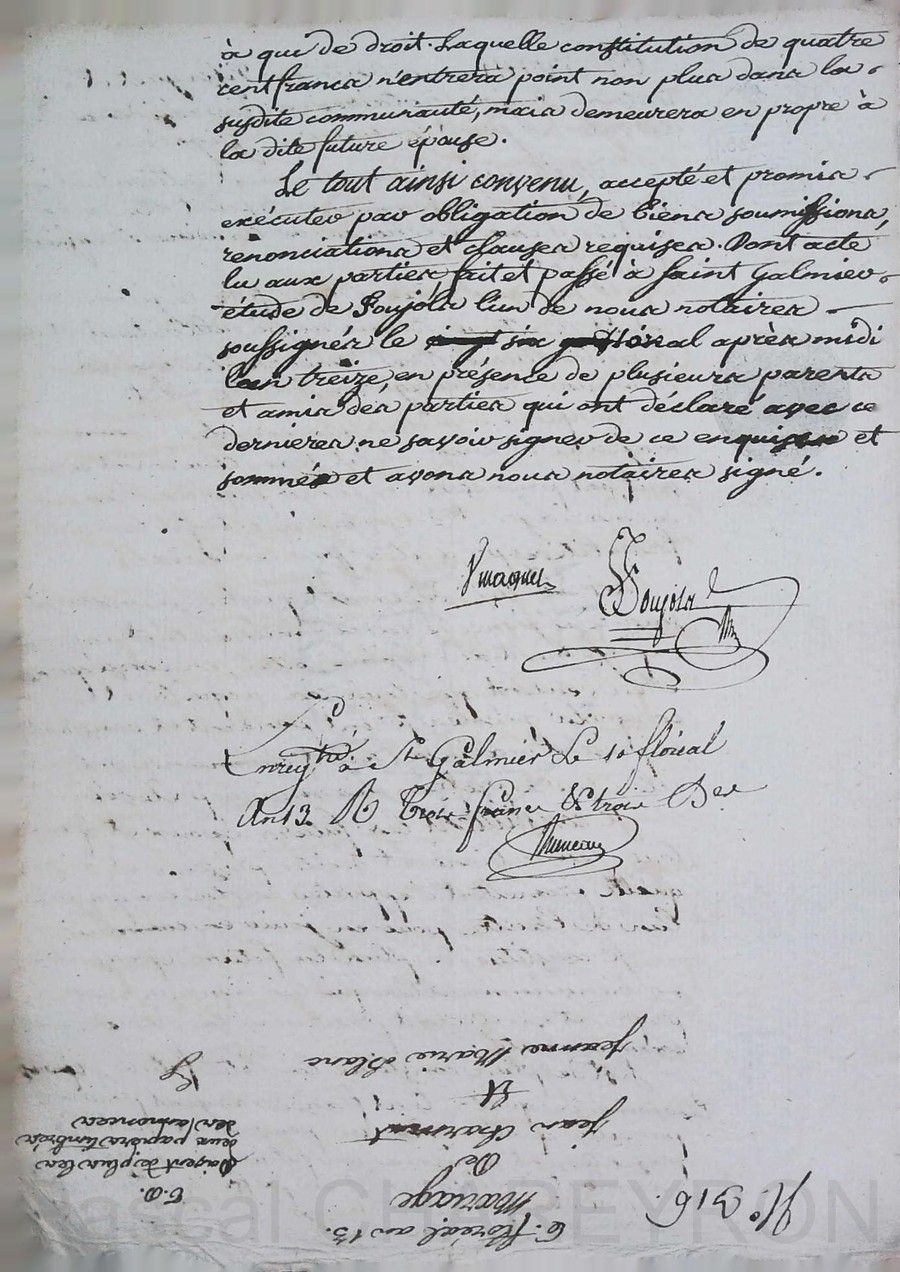 à qui de droit. Laquelle constitution de quatre
cent francs n'entrera point non plus dans la
susdite communauté, mais demeurera en propre à
la dite future épouse.
Le tout ainsi convenu, accepté et promis
exécuter par obligation de biens soumissions,
renonciations et clauses requises. Dont acte
lu aux parties, fait et passé à Saint Galmier
étude de Poujola l'un de nous notaires
soussignés le six floréal après midi
l'an treize, en présence de plusieurs parents
et amis des parties qui ont déclaré avec ce
derniers ne savoir signer de ce enquis et
sommés et avons nous notaires signé.
Poujola
Enregtré à St Galmier Le 10 floréal
An 13 R trois francs & trois
Jeanne Marie Blanc
Et
Jean
De
Mariage
6. floréal an 13.
N.° 316.
payent de plus les
deux papiers timbrés
des annonces
Pascal CHAPEYRON